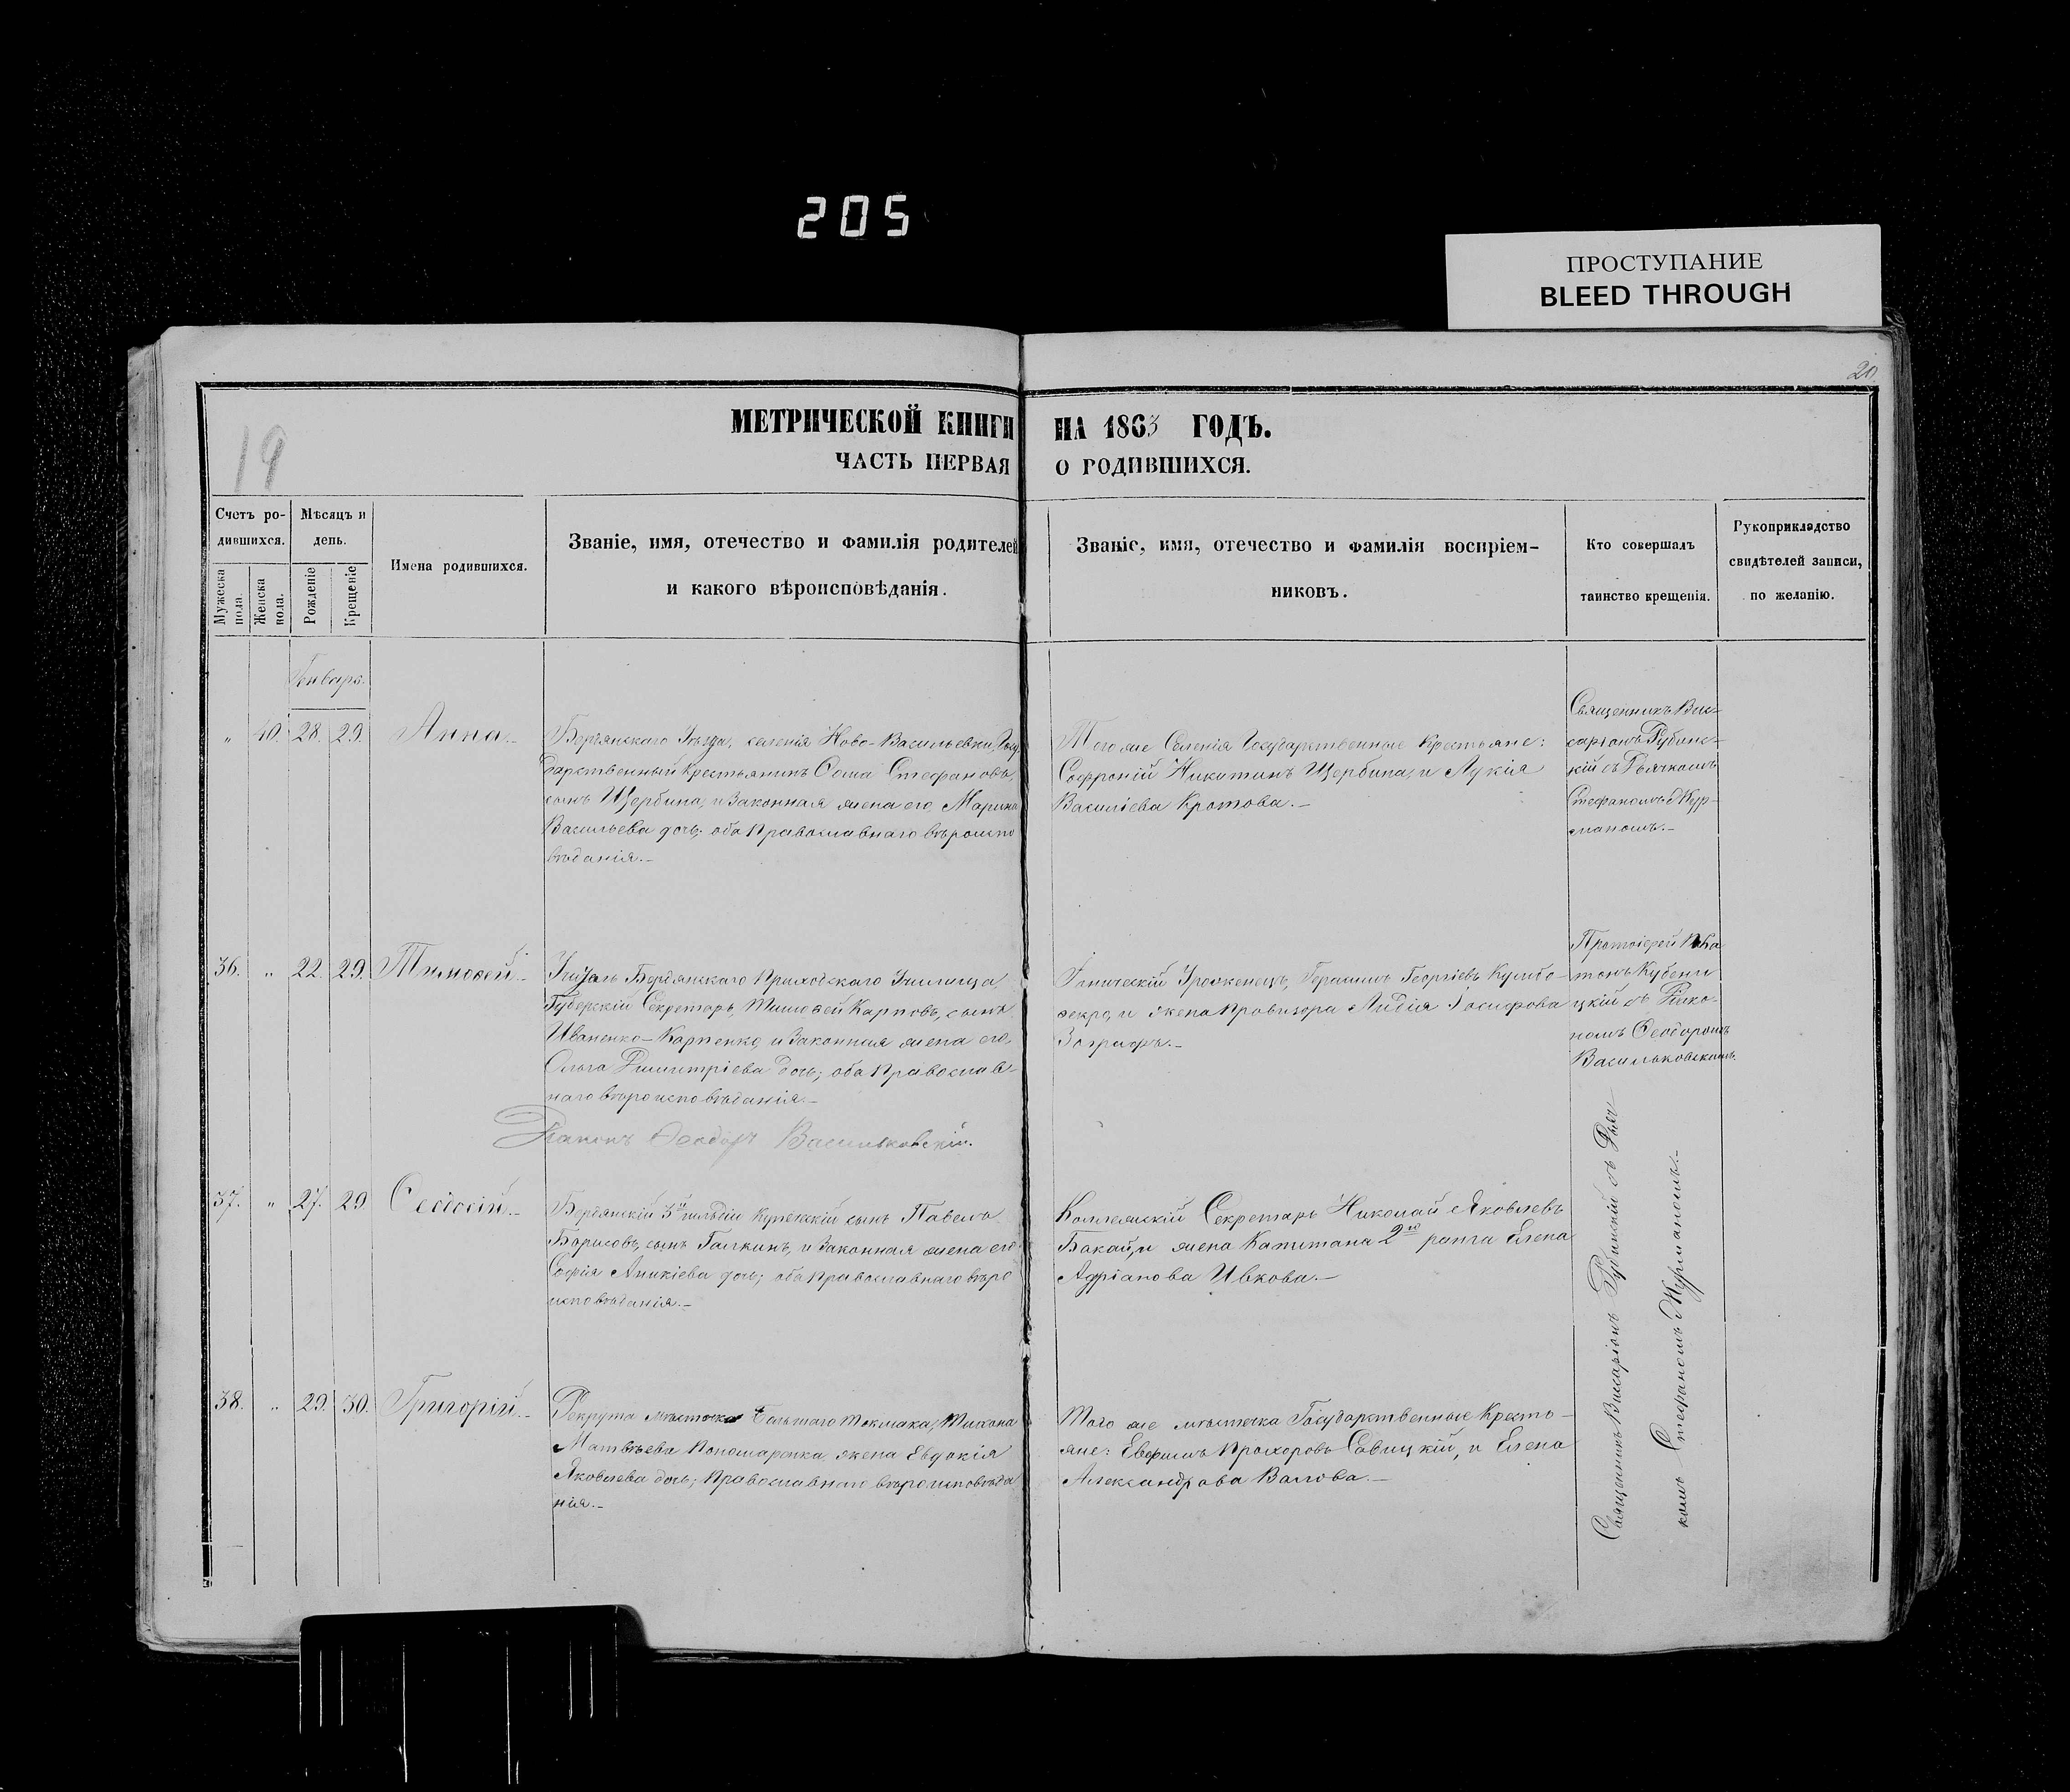 205
ПРОСТУПАНИЕ
BLEED THROUGH
20
19
МЕТРИЧЕСКОЙ КНИГИ НА 1863 ГОДЪ.
ЧАСТЬ ПЕРВАЯ О РОДИВШИХСЯ.
Счетъ ро-
дившихся.
Мужеска
пола.
Женска
пола.
Мѣсяцъ и
день.
Рожденіе
Крещеніе
Имена родившихся.
Званіе, имя, отечество и фамилія родителей
и какого вѣроисповѣданія.
Званіе, имя, отечество и фамилія воспріем-
никовъ.
Кто совершалъ
таинство крещенія.
Рукоприкладство
свидѣтелей записи,
по желанію.
Генварь.
„ 40. 28. 29. Анна.
Бердянскаго Уѣзда, селенія Ново-Васильевки, Госу
дарственный Крестьянинъ Ѳома Стефановъ,
сынъ Щербина, и Законная жена его Марина
Васильева дочь; оба Православнаго вѣроиспо
вѣданія.-
Того же Селенія Государственные Крестьяне:
Софроній Никитинъ Щербина, и Лукія
Василіева Кротова.-
Священникъ Вис-
саріонъ Рубинс-
кій съ Дьячкомъ
Стефаномъ
36. „ 22. 29. Тимоѳей.-
Учитель Бердянскаго Приходскаго Училища
Губерскій Секретарь, Тимоѳей Карповъ, сынъ
Иваненко-Карпенко, и Законная жена его,
Ольга Димитріева дочь; оба Православ-
наго вѣроисповѣданія.-
Діаконъ Ѳеодоръ Васильковскій.
Уроженецъ, Герасимъ Георгіевъ
и жена Провизора Лидія Іосифова
Зографъ.-
Протоіерей
съ Діако-
номъ Ѳеодоромъ
Васильковскимъ.
37. „ 27. 29 Ѳеодосій.-
Бердянскій 3й гильдіи Купеческій сынъ Павелъ
Борисовъ, сынъ Галкинъ, и Законная жена его
Софія Аникіева дочь; оба Православнаго вѣро
исповѣданія.-
Коллежскій Секретарь Николай Яковлевъ
Бакай, и жена Капитана 2го ранга Елена
Адріанова Ивкова.-
38. „ 29. 30. Григорій.-
Рекрута мѣстечка Большаго Токмака, Тихона
Матвѣева Пономаренка жена Евдокія
Яковлева дочь; Православнаго вѣроисповѣда
нія.-
Того же мѣстечка Государственные Кресть-
яне: Евфимъ Прохоровъ Савицкій, и Елена
Александрова Валова.-
Священникъ Виссаріонъ Рубинскій съ Дьяч-
комъ Стефаномъ